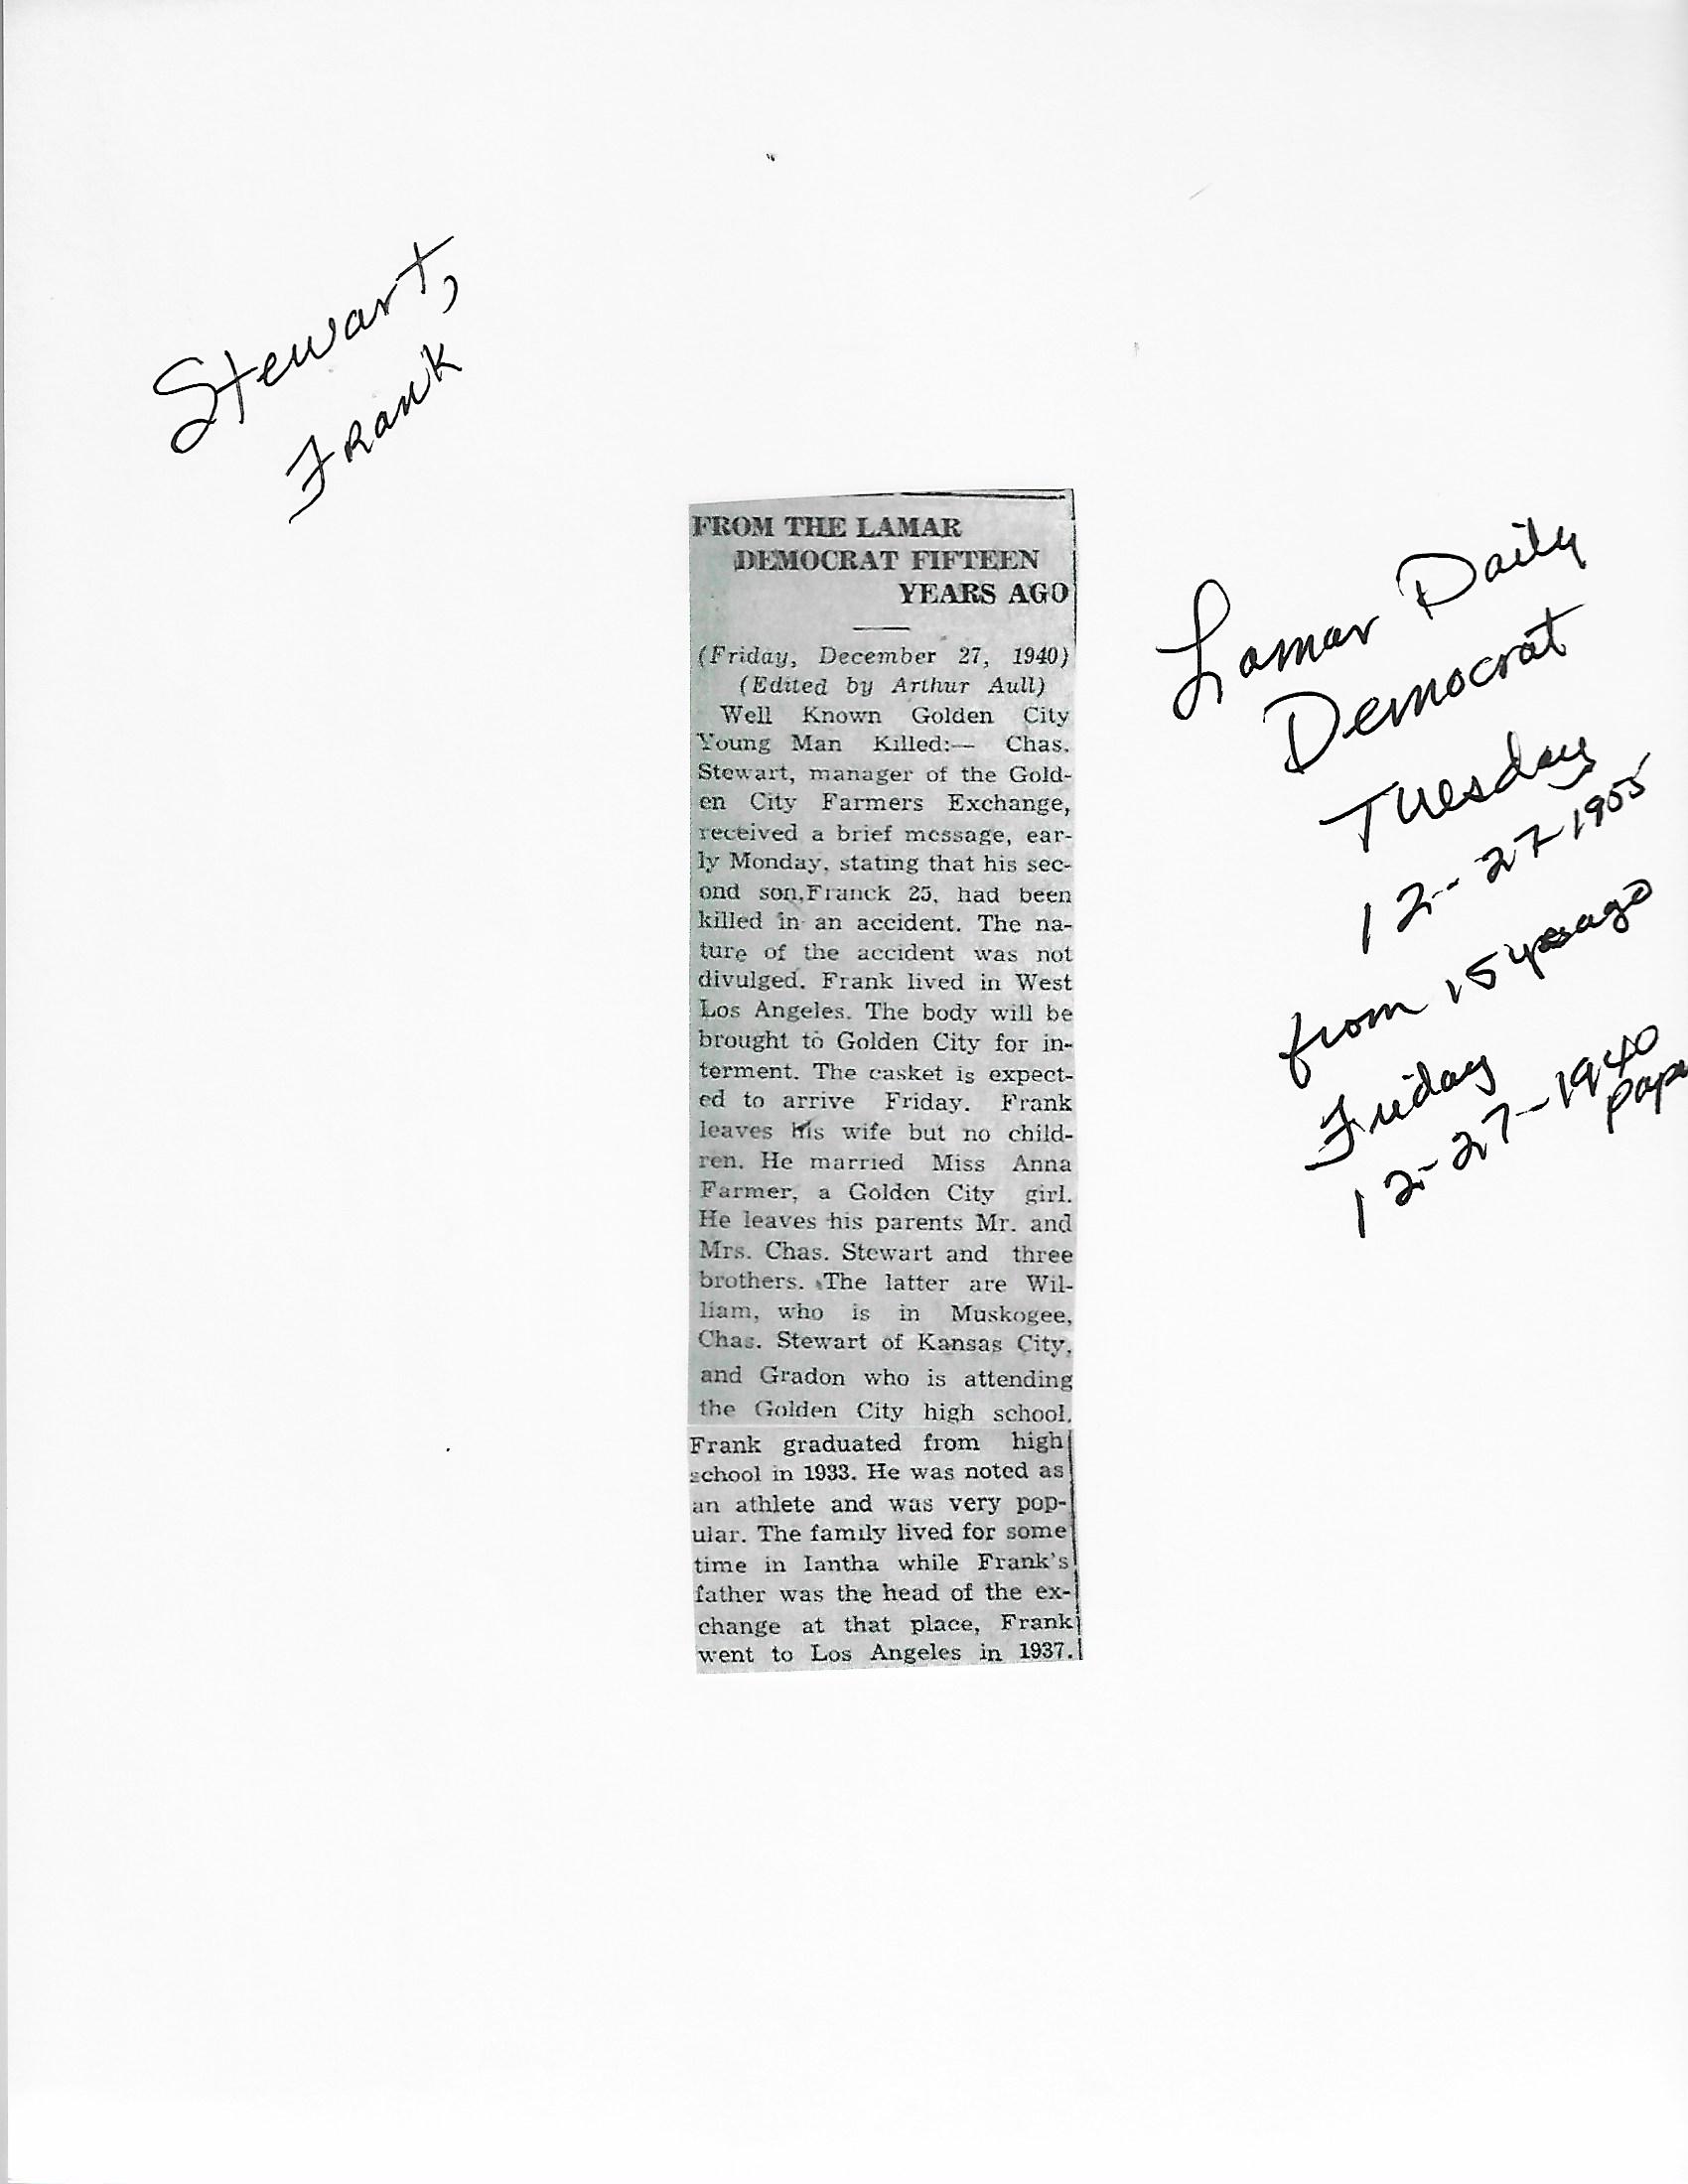 Stewart,
Frank
FROM THE LAMAR
DEMOCRAT FIFTEEN
YEARS AGO
(Friday, December 27, 1940)
(Edited by Arthur Aull)
Well Known Golden City
Young Man Killed:— Chas.
Stewart, manager of the Gold-
en City Farmers Exchange,
received a brief message, ear-
ly Monday, stating that his sec-
ond son,Franck 25, had been
killed in an accident. The na-
ture of the accident was not
divulged. Frank lived in West
Los Angeles. The body will be
brought to Golden City for in-
terment. The casket is expect-
ed to arrive Friday. Frank
leaves his wife but no child-
ren. He married Miss Anna
Farmer, a Golden City girl.
He leaves his parents Mr. and
Mrs. Chas. Stewart and three
brothers. The latter are Wil-
liam, who is in Muskogee,
Chas. Stewart of Kansas City,
and Gradon who is attending
the Golden City high school.
Frank graduated from high
school in 1933. He was noted as
an athlete and was very pop-
ular. The family lived for some
time in Iantha while Frank's
father was the head of the ex-
change at that place, Frank
went to Los Angeles in 1937.
Lamar Daily
Democrat
Tuesday
12-27-1955
from 15 yrs ago
Friday
12-27-1940
pap